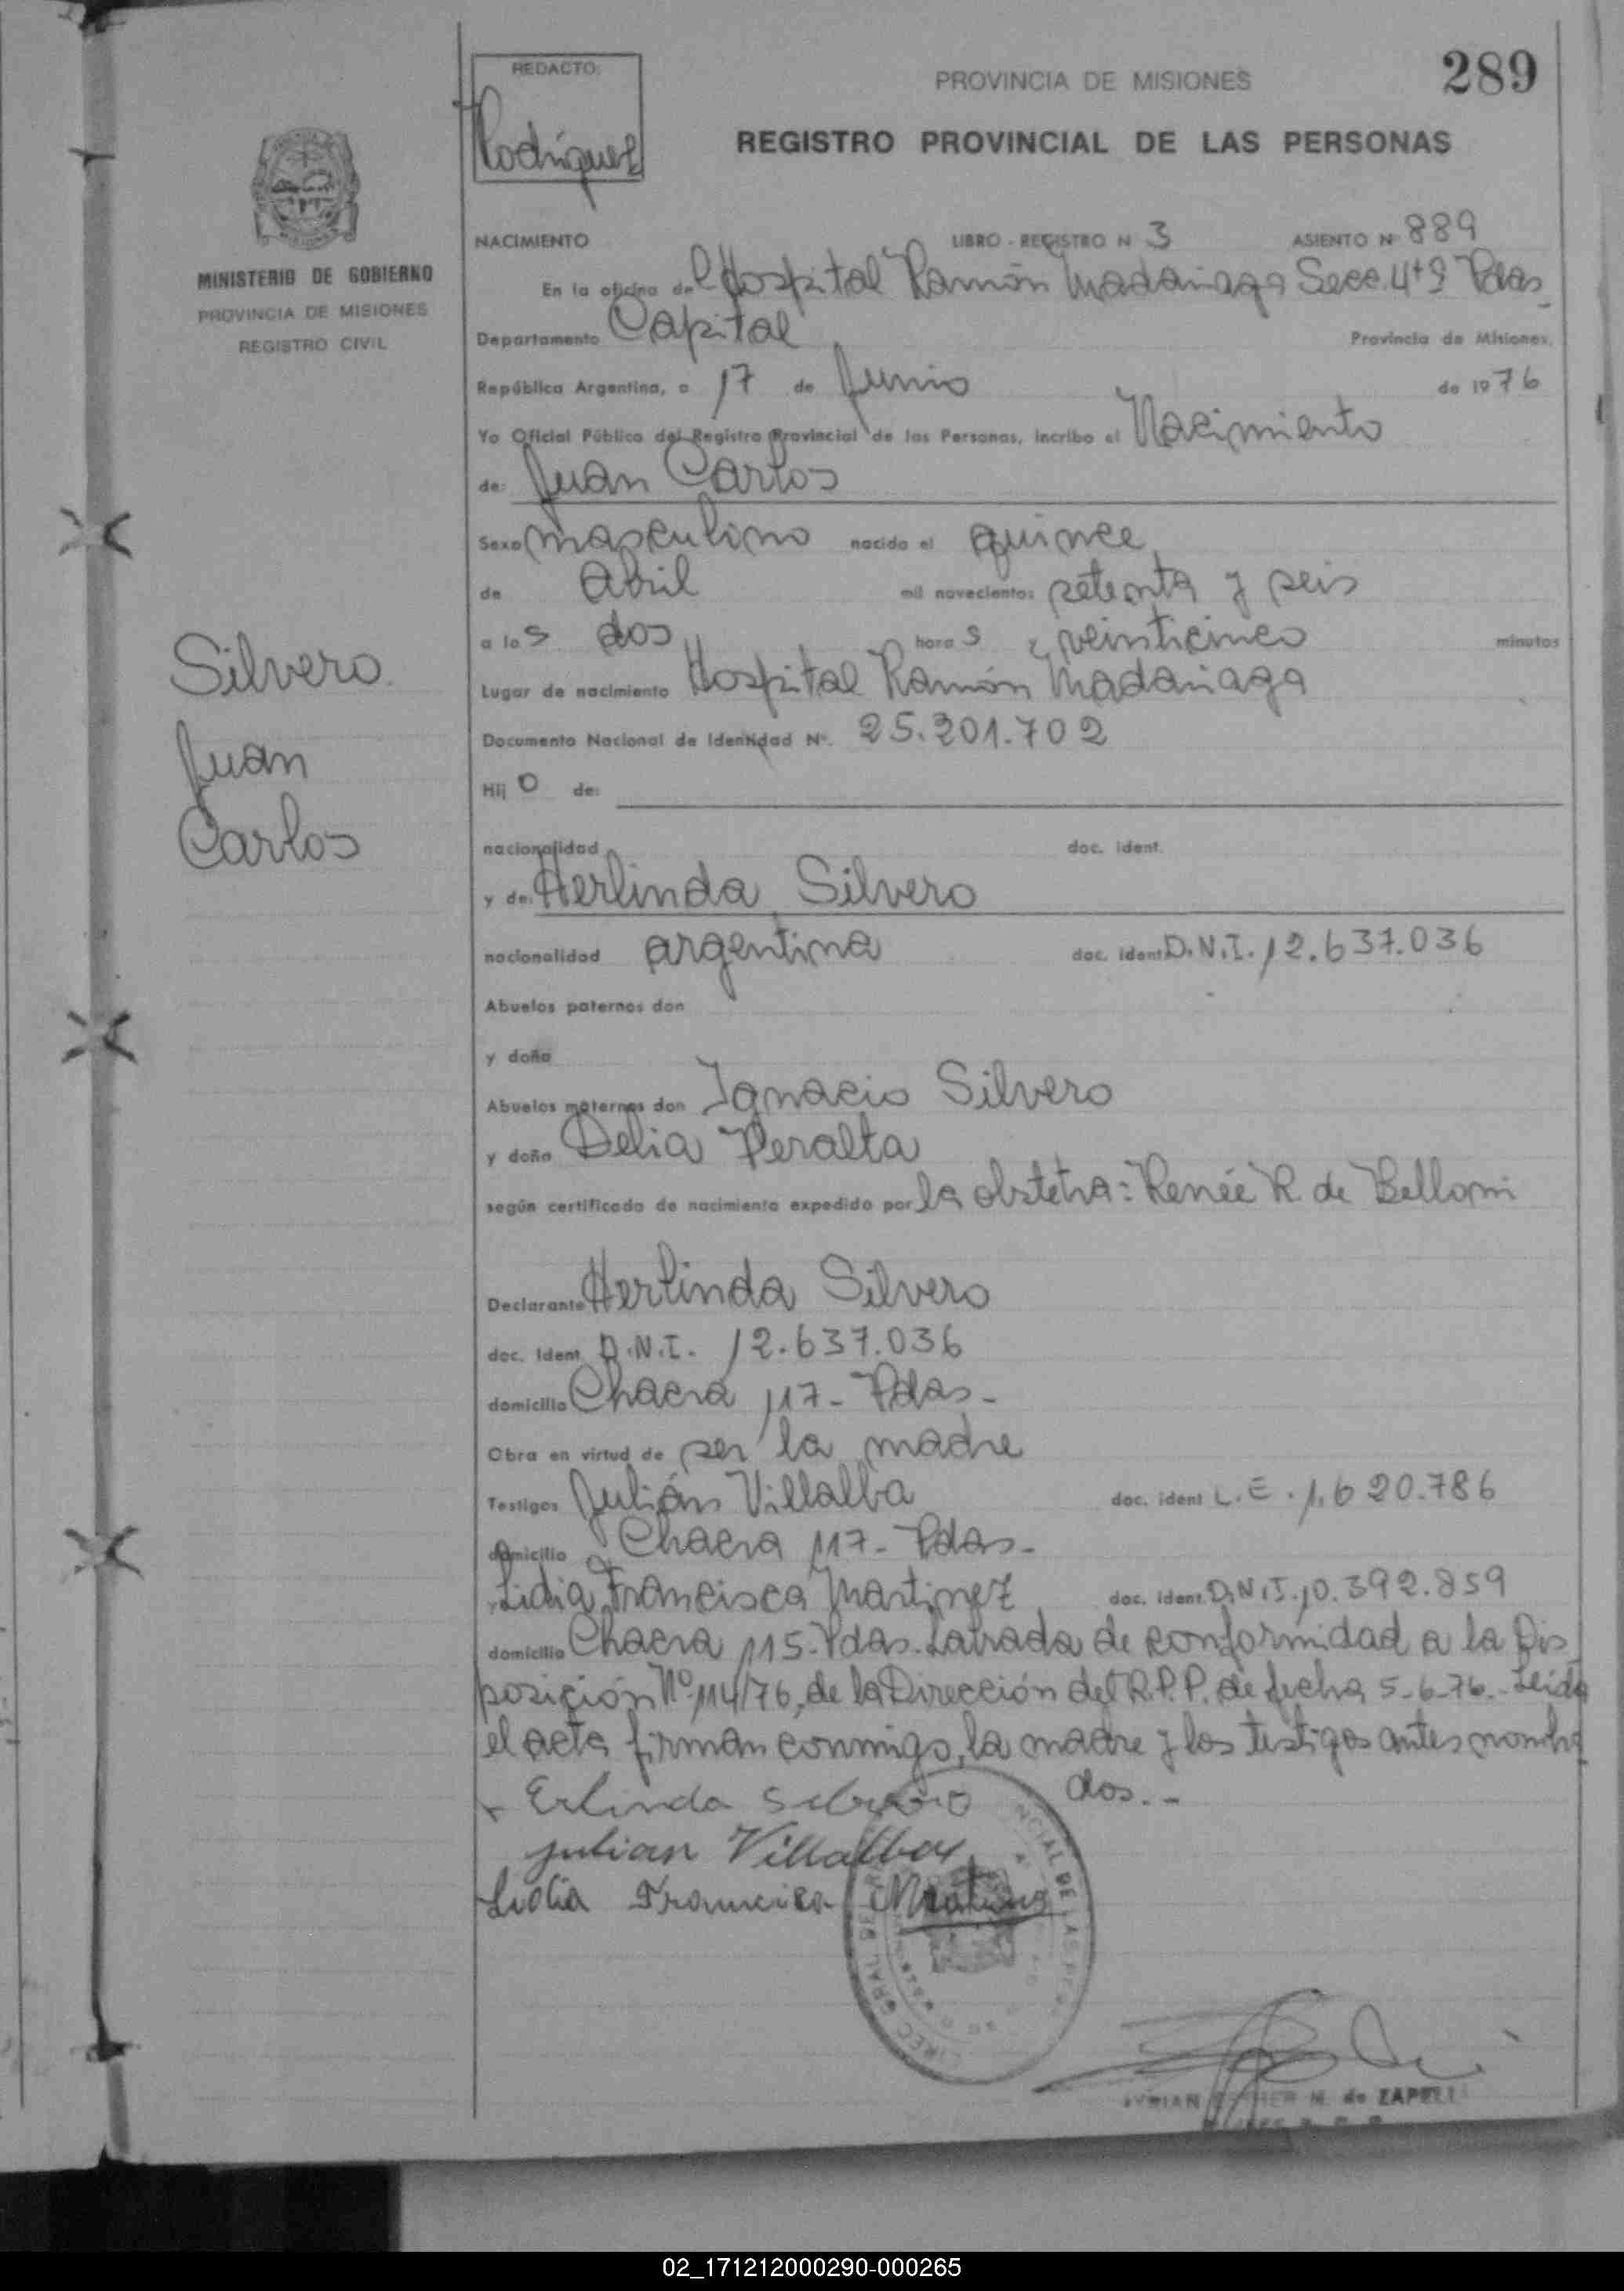 REDACTO:
Rodríguez
PROVINCIA DE MISIONES
289
REGISTRO PROVINCIAL DE LAS PERSONAS
MINISTERIO DE GOBIERNO
PROVINCIA DE MISIONES
REGISTRO CIVIL
NACIMIENTO LIBRO - REGISTRO N 3 ASIENTO Nº 889
En la oficina del Hospital Ramón Madariaga Secc. 4ta Pdas_
Departamento Capital Provincia de Misiones,
República Argentina, a 17 de Junio de 1976
Yo Oficial Público del Registro Provincial de las Personas, incribo el Nacimiento
de: Juan Carlos
Sexo masculino nacido el quince
de Abril mil novecientos setenta y seis
a las dos horas y veinticinco minutos
Silvero
Juan
Carlos
Lugar de nacimiento Hospital Ramón Madariaga
Documento Nacional de Identidad Nº. 25.201.702
Hijo de:
nacionalidad doc. ident.
y de: Herlinda Silvero
nacionalidad argentina doc. ident D.N.I. 12.637.036
Abuelos paternos don
y doña
Abuelos maternos don Ignacio Silvero
y doña Delia Peralta
según certificado de nacimiento expedido por la obstetra: Renée R. de Belloni
Declarante Herlinda Silvero
doc. Ident. D.N.I. 12.637.036
domicilio Chacra 117- Pdas-
Obra en virtud de ser la madre
Testigos Julián Villalba doc. ident L.E. 1.620.786
domicilio Chacra 117- Pdas-
y Lidia Francisca Martinez doc. ident. D.N.I. 10.392.859
domicilio Chacra 115- Pdas. Labrada de conformidad a la Dis_
posición Nº 114/76, de la Dirección del R.P.P. de fecha 5-6-76.- Leida
el acta firman conmigo, la madre y los testigos antes nombra
dos.-
Erlinda Silvero
Julian Villalba
Lidia Francisca Martinez
DIREC GRAL DE NCIAL DE LAS
de ZAPELLI
02_171212000290-000265